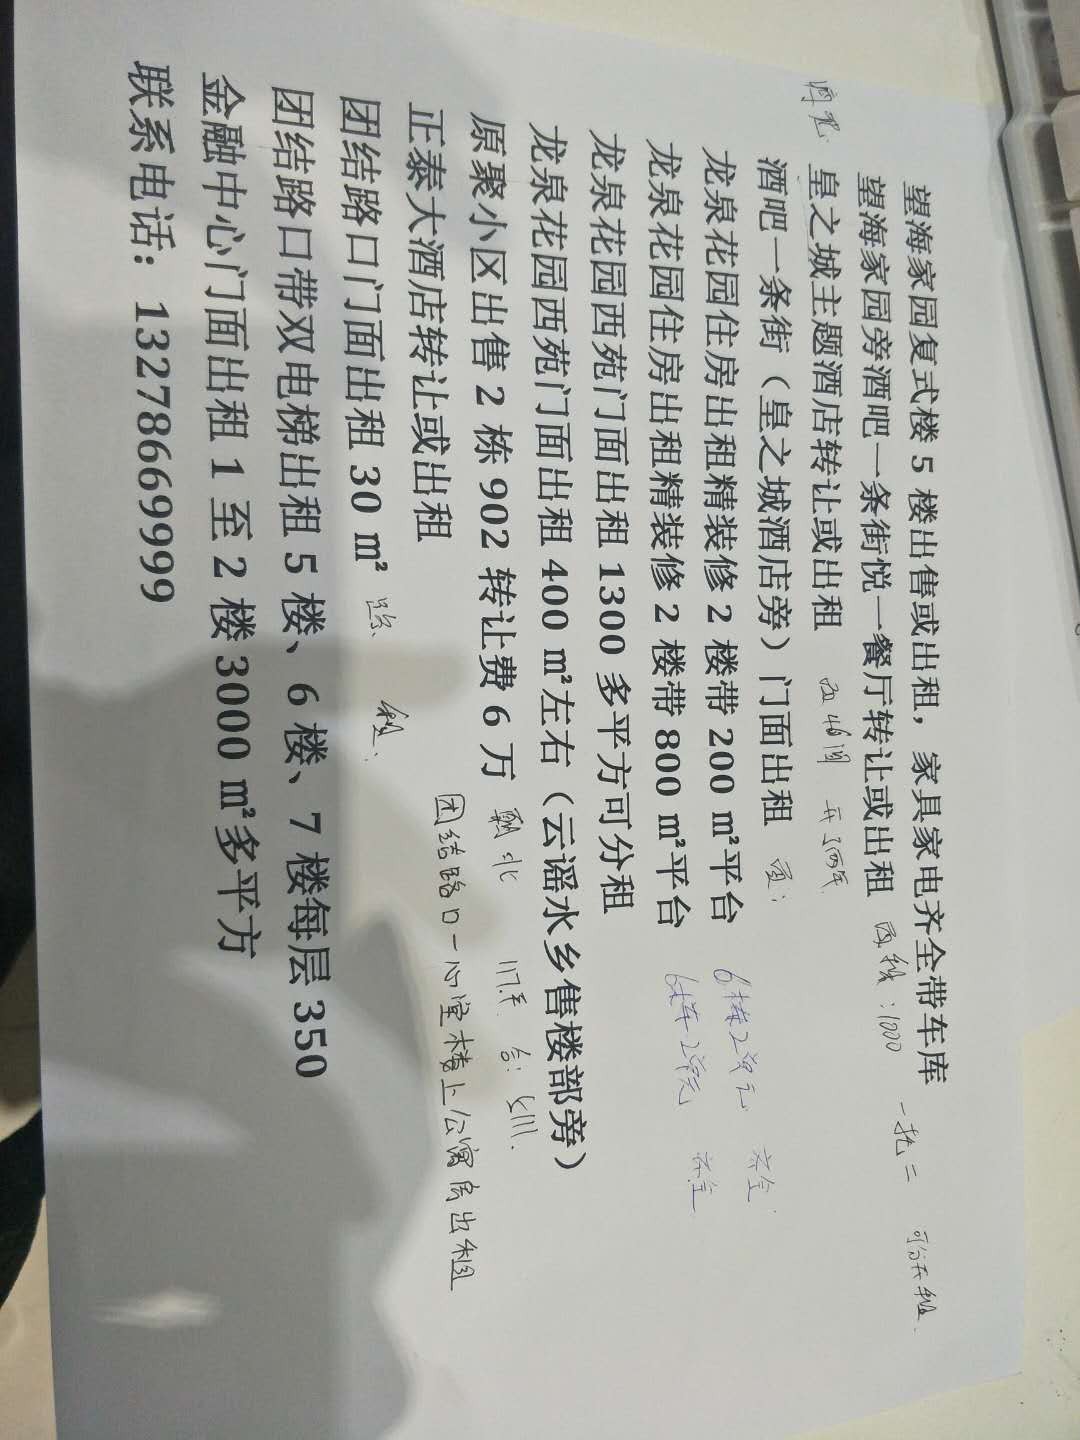 望海家园复式楼 5 楼出售或出租，家具家电齐全带车库
望海家园旁酒吧一条街悦一餐厅转让或出租 1000 一托二 可分开租
皇之城主题酒店转让或出租
酒吧一条街（皇之城酒店旁）门面出租
龙泉花园住房出租精装修 2 楼带 200 m²平台 6栋2单元 齐全
龙泉花园住房出租精装修 2 楼带 800 m²平台 6栋2单元 齐全
龙泉花园西苑门面出租 1300 多平方可分租
龙泉花园西苑门面出租 400 m²左右（云谣水乡售楼部旁）
原聚小区出售 2 栋 902 转让费 6 万 朝北 117平
正泰大酒店转让或出租 团结路口一心堂楼上公寓房出租
团结路口门面出租 30 m² 租
团结路口带双电梯出租 5 楼、6 楼、7 楼每层 350
金融中心门面出租 1 至 2 楼 3000 m²多平方
联系电话：13278669999